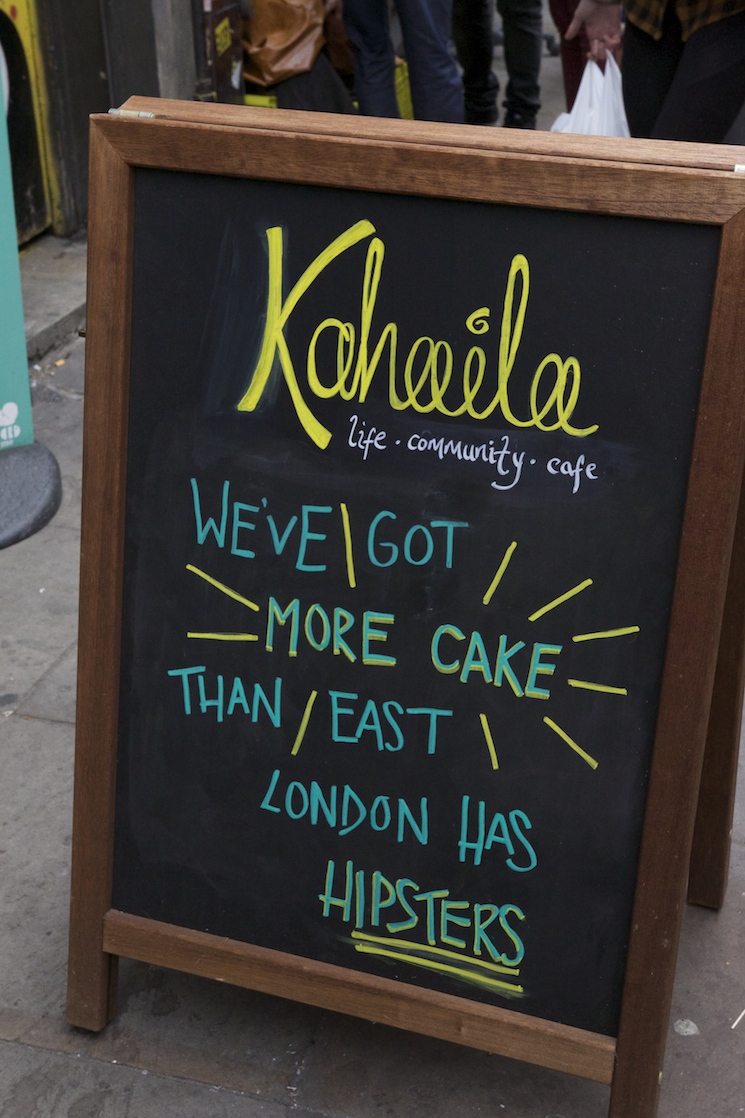 Kahaila
life · community · cafe
WE'VE GOT
MORE CAKE
THAN EAST
LONDON HAS
HIPSTERS